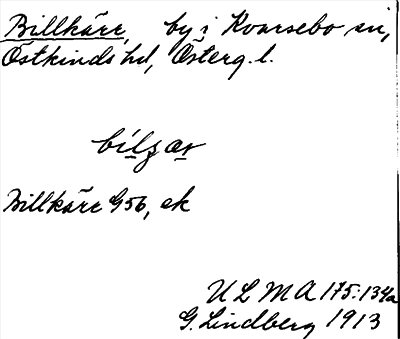 Billkärr, by i Kvarsebo sn,
Östkinds hd, Österg. l.
bilʒ ær
Billkärr G56, ek
ULMA 175:134a
G. Lindberg 1913